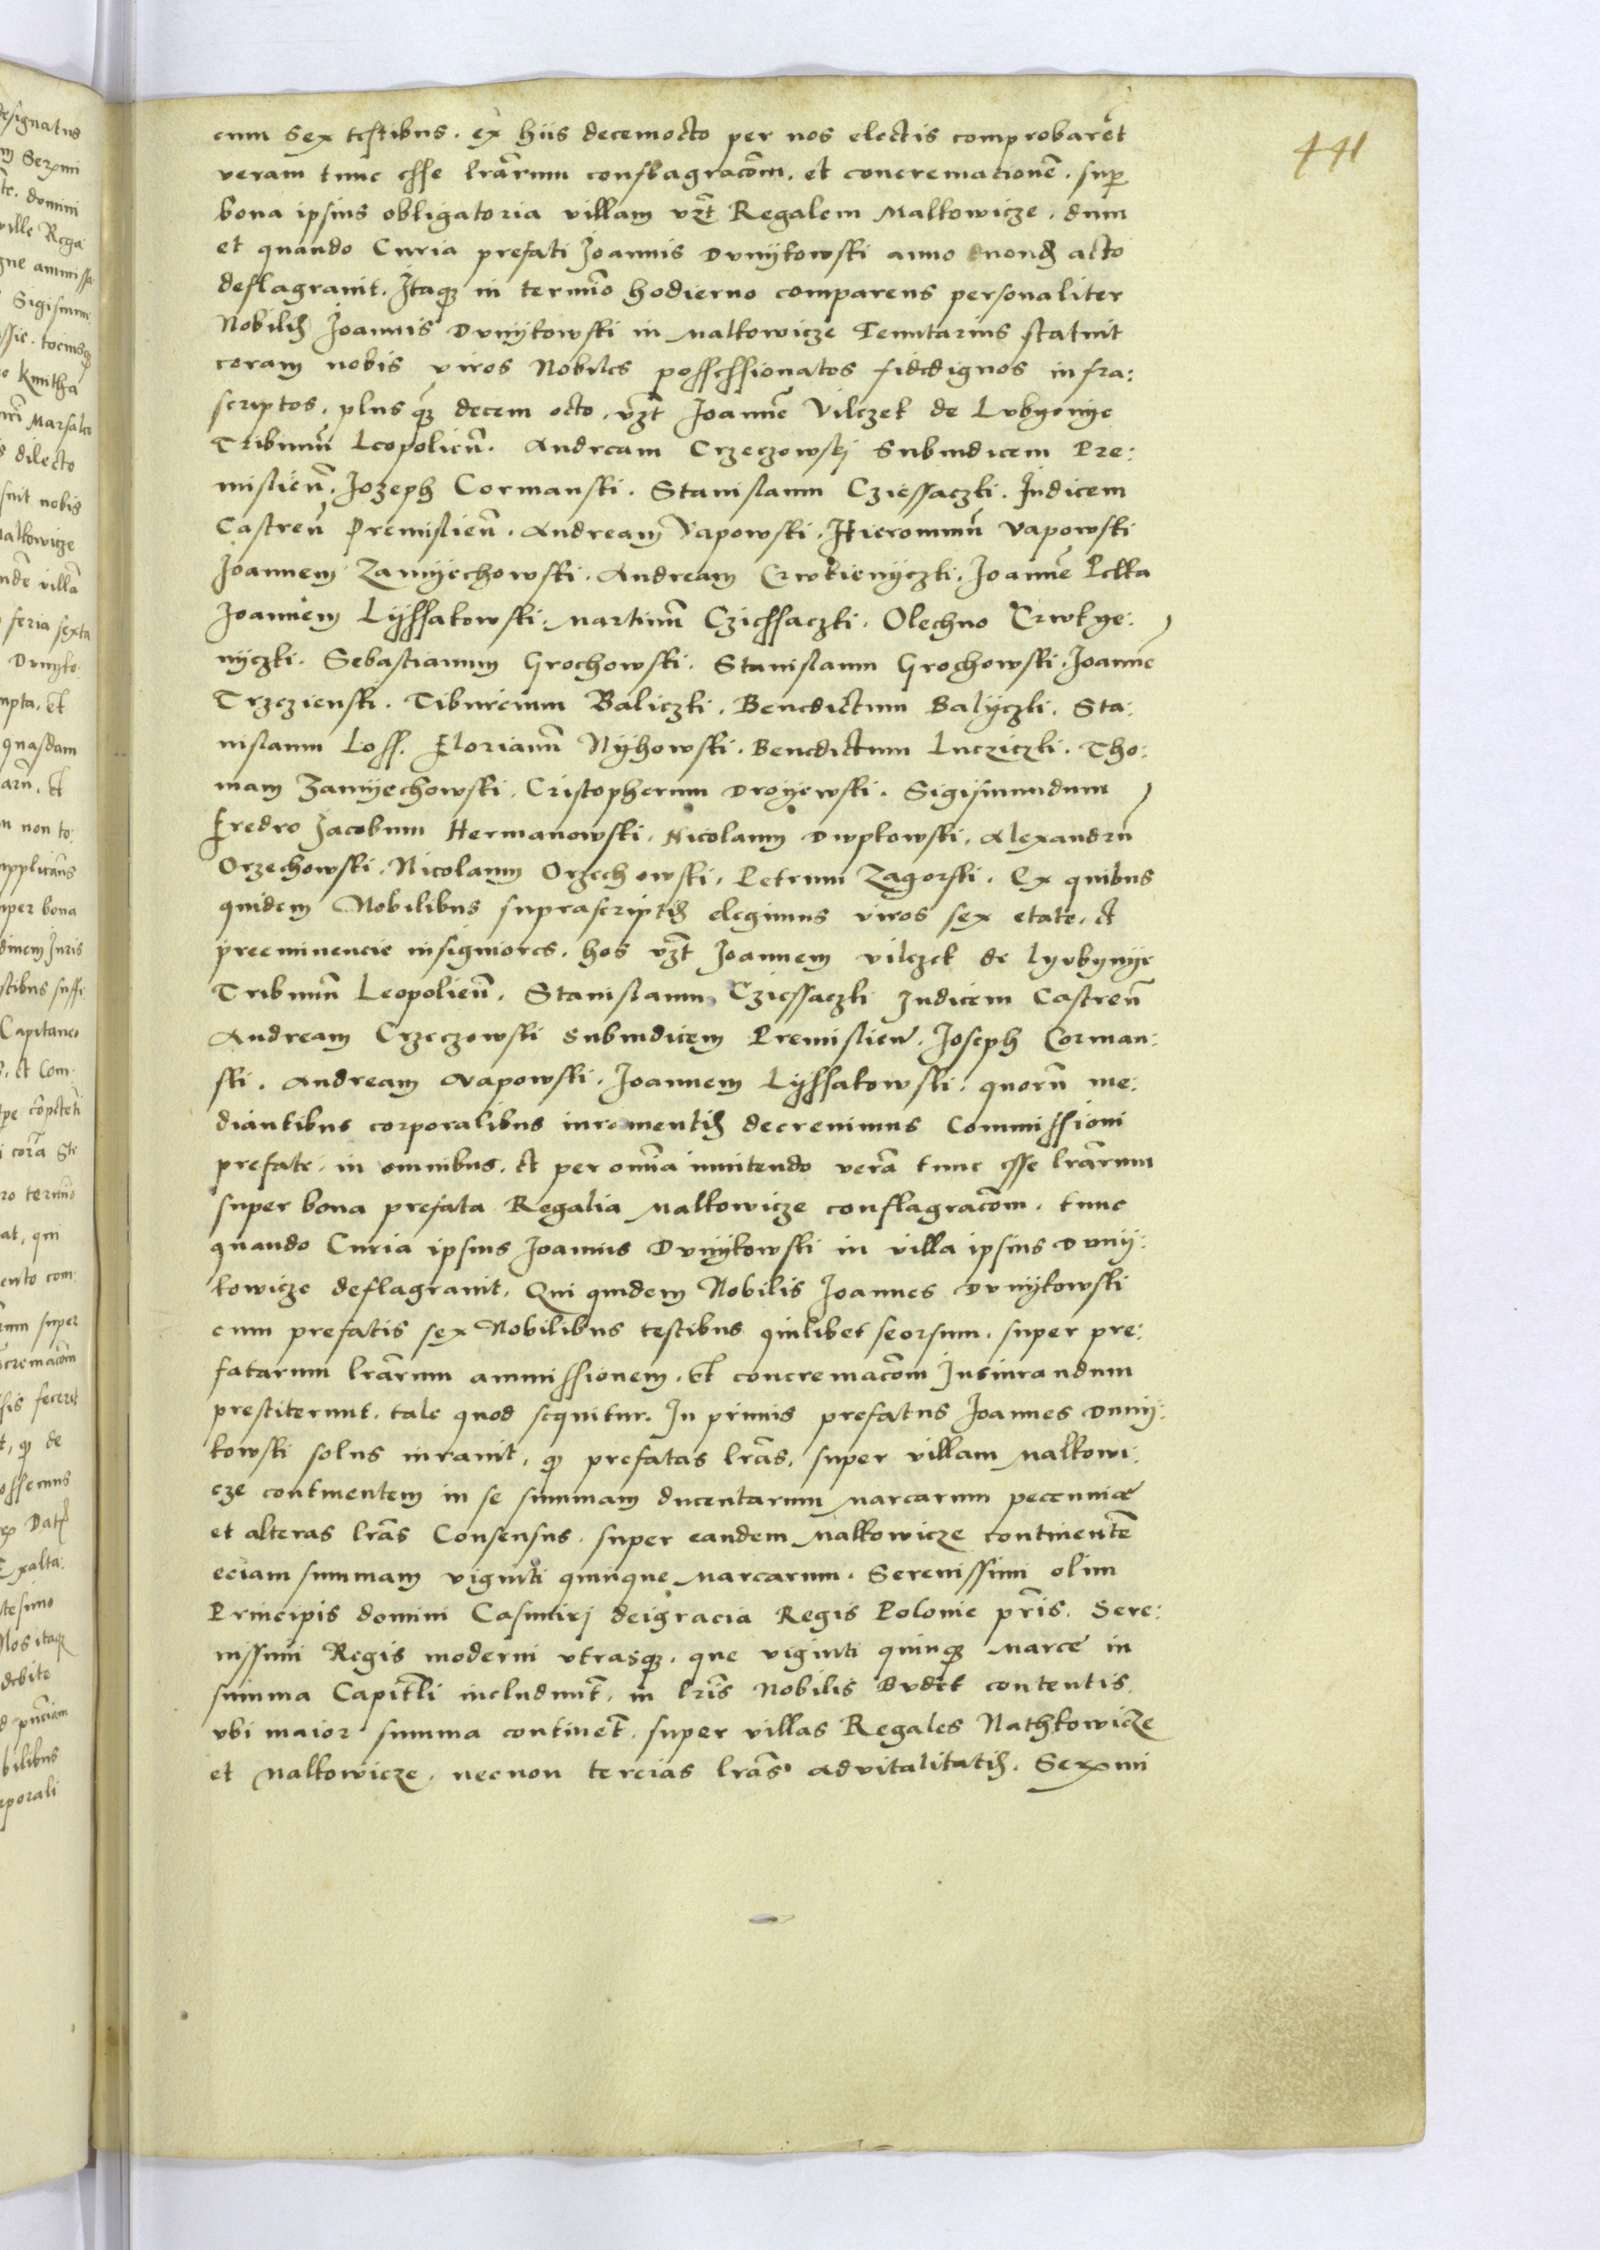 441
cum sex testibus. ex hiis decemocto per nos electis comprobarēt
veram tunc esse lrārum conflagracōm. et concremacionē. sup
bona ipsius obligatoria villam vzt Regalem Malkowicze. dum
et quando Curia prefati Joannis Dunykowski anno nond acto
deflagravit. Itaqz in termīo hodierno comparens personaliter
Nobilis Joannis Dunykowski in Malkowicze Tenutarius statuit
coram nobis viros Nobiles possessionatos fidedignos infra:
scriptos. plus qz decem octo. vzt Joannē Vilczek de Lubyenye
Tribunū Leopolieñ. Andream Crzeczowski Subiudicem Pre:
mislieñ. Jozeph Cormanski. Stanislaum Cziessaczki. Judicem
Castreñ Premislieñ. Andream Vapowski. Hieronimū Vapowski
Joannem Zamyechowski. Andream Crwkienyczki. Joannē Pelka
Joannem Lyssakowski. Martinū Cziessaczki. Olechno Crwkye:
nyczki. Sebastianum Grochowski. Stanislaum Grochowski. Joannē
Trzczienski. Tiburcium Baliczki. Benedictum Balyczki. Sta:
nislaum Loss. Florianū Nyhowski. Benedictum Lucziczki. Tho:
mam Zamyechowski. Cristopherum Droyewski. Sigismundum
Fredro Jacobum Hermanowski. Nicolaum Dwpkowski. Alexandrū
Orzechowski. Nicolaum Orzechowski. Petrum Zagorski. Ex quibus
quidem Nobilibus suprascriptis elegimus viros sex etate. et
preeminencie insigniores. hos vzt Joannem Vilczek de Lyubynye
Tribunū Leopolieñ. Stanislaum Cziessaczki Judicem Castreñ
Andream Crzeczowski Subiudicem Premislieñ. Joseph Corman:
ski. Andream Vapowski. Joannem Lyssakowski. quorū me:
diantibus corporalibus iuramentis decrevimus Commissioni
prefate. in omnibus. et per omīa innitendo verā tunc esse lrārum
super bona prefata Regalia Malkowicze conflagracōm. tunc
quando Curia ipsius Joannis Dunykowski in villa ipsius Duny:
kowicze deflagravit. Qui quidem Nobilis Joannes Dunykowski
cum prefatis sex Nobilibus testibus quilibet seorsum. super pre:
fatarum lrārum ammissionem. et concremacōm Jusiurandum
prestiterunt. tale quod sequitur. In primis prefatus Joannes Duny:
kowski solus iuravit, qz prefatas lrās. super villam Malkowi:
cze continentem in se summam ducentarum Marcarum pecunie
et alteras lrās Consensus. super eandem Malkowicze continentē
eciam summam viginti quinque Marcarum. Serenissimi olim
Principis domini Casimiri deigracia Regis Polonie pris. Sere:
nissimi Regis moderni utrasqz. que viginti quinqz Marce in
summa Capitli includunt. in lris Nobilis Budek contentis.
ubi maior summa continet. super villas Regales Nathkowicze
et Malkowicze. necnon tercias lrās advitalitatis. Serxmi